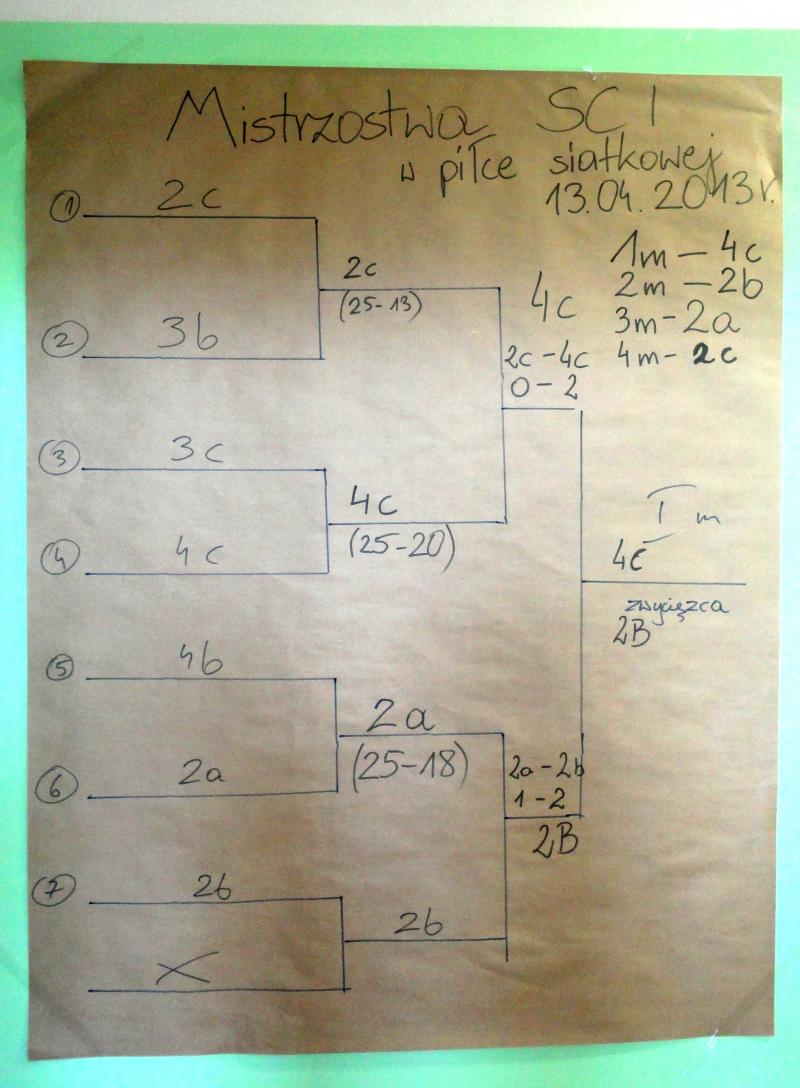 Mistrzostwa SC I
w piłce siatkowej
13.04.2013r.
1m — 4c
2m — 2b
3m - 2a
4m - 2c
① 2c
② 3b
2c
(25-13)
③ 3c
④ 4c
4c
(25-20)
4c
2c - 4c
0 - 2
⑤ 4b
⑥ 2a
2a
(25-18)
⑦ 2b
X
2b
2a - 2b
1 - 2
2B
I m
4c
zwycięzca
2B